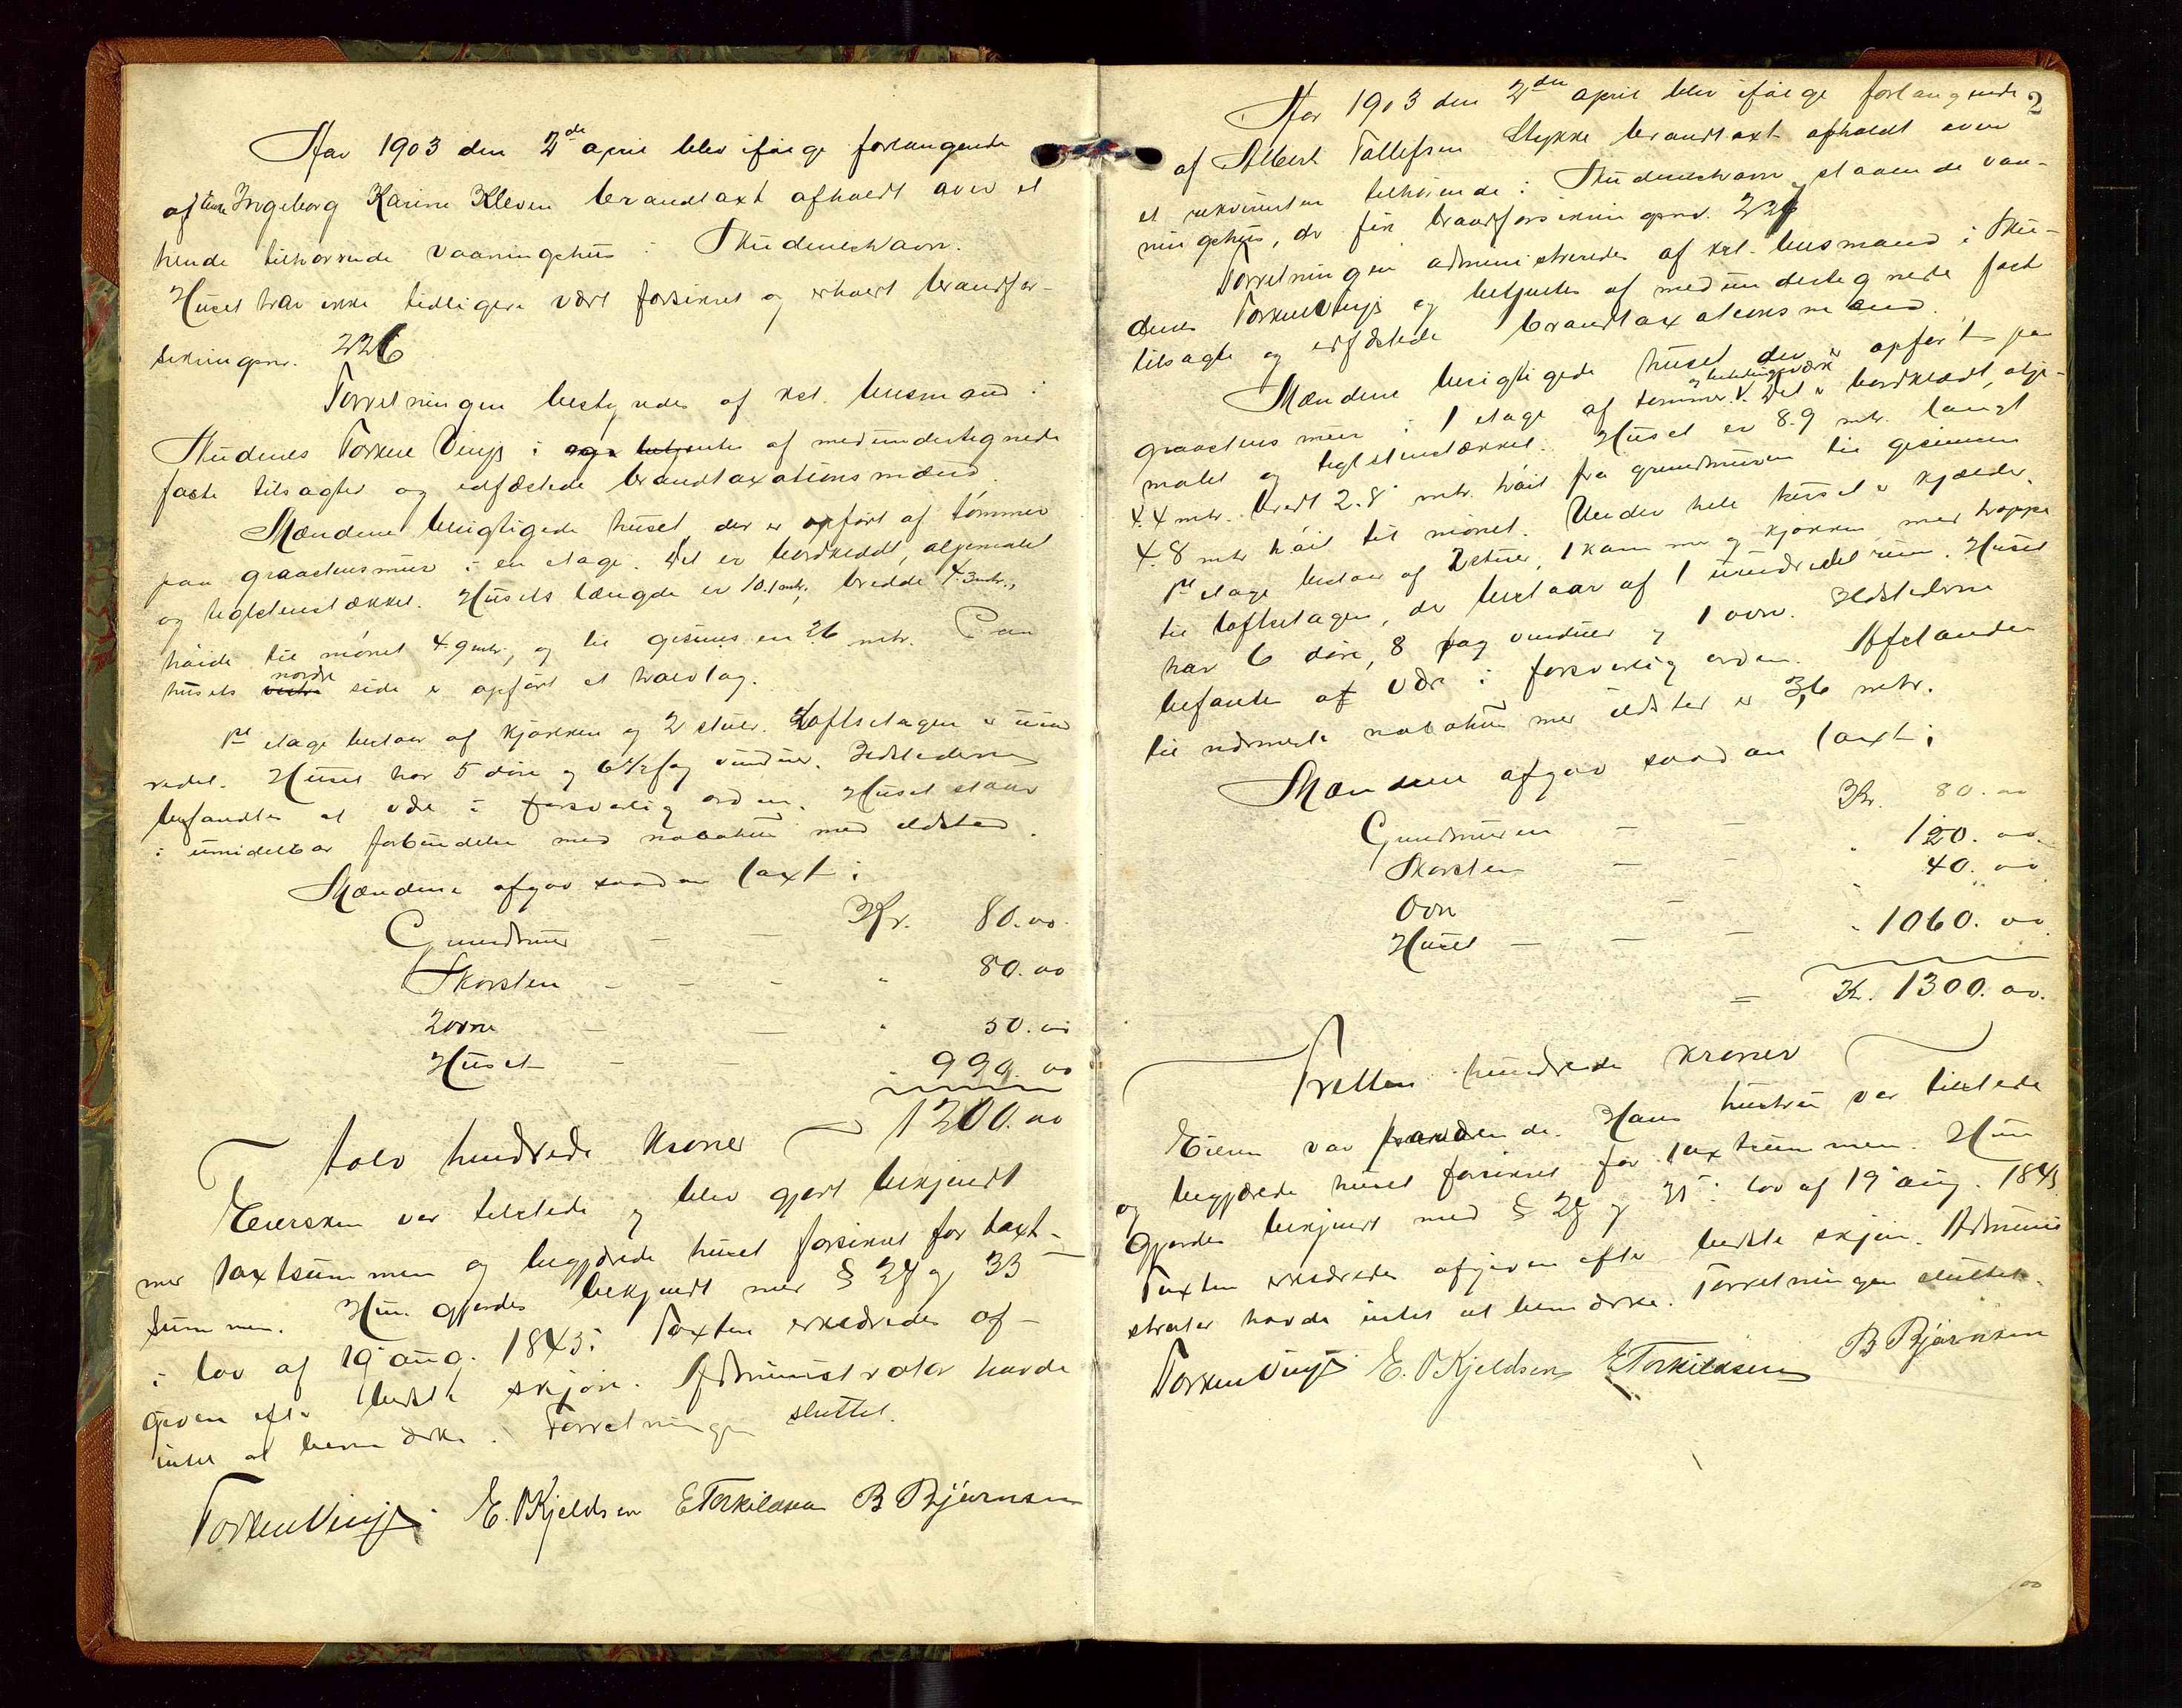 Aar 1903 den 2de april blev ifølge forlangende
af Enke Ingeborg Karine Kleven brandtaxt afholdt over et
hende tilhørende vaaningshus i Skudeneshavn.
Huset har ikke tidligere vært forsikret og erholdt brandfor-
sikringsnr. 226
Forretningen bestyredes af kst. lensmand i
Skudenes Torkel Vinje i og betjentes af medundertegnede
faste tilsagte og edfæstede brandtaxationsmænd.
Mændene besigtigede huset, der er opført af tømmer
paa graastensmur i en etage. Det er bordklædt, oljemalet
og teglstenstækket. Husets længde er 10.1 mtr., bredde 4.3 mtr.,
høide til mønet 4.9 mtr., og til gesims en 26 mtr. Paa
husets vestre nordre side er opført et halvtag.
1ste etage bestaar af kjøkken og 2 stuer. Loftsetagen er uind
redet. Huset har 5 døre og 6½ fag vinduer. Ildstederne
befandtes at være i forsvarlig orden. Huset staar
i umidelbar forbindelse med nabohus med ildsted.
Mændene afgav saadan taxt:
Grundmur — — Kr. 80.00
Skorsten - - - " 80.00
2 ovne — — " 50.00
Huset - - " 990.00
1200.00
Tolv hundrede kroner
Eiersken var tilstede og blev gjort bekjendt
med taxtsummen og begjærede huset forsikret for taxt-
summen. Hun gjordes bekjendt med § 28 og 33
i lov af 19 aug. 1845. Taxten erklæredes af-
given efter bedste skjøn. Administrator havde
intet at bemærke. Forretningen sluttet.
Torkel Vinje. E. O Kjeldsen E Torkildsen B Bjørnsen
2
Aar 1903 den 2den april blev ifølge forlangende
af Albert Tollefsen Stykke brandtaxt afholdt over
et rekvirenten tilhørende i Skudeneshavn staaende vaa-
ningshus, der fik brandforsikringsnr. 227
Forretningen administreredes af kst. lensmand i Sku-
denes Torkel Vinje og betjentes af medundertegnede fast
tilsagte og edfæstede brandtaxationsmænd.
Mændene besigtigede huset der er opført paa
graastens mur i 1 etage af tømmer og bindingsværk. Det er bordklædt, olje-
malet og teglstenstækket. Huset er 8.9 mtr. langt
4.4 mtr. bredt 2.8 mtr. høit fra grundmuren til gesimsen
4.8 mtr høit til mønet. Under hele huset er kjælder.
1ste etage bestaar af 2 stuer, 1 kammer og kjøkken med trappe
til loftsetagen, der bestaar af 1 uindredet rum. Huset
har 6 døre, 8 fag vinduer og 1 ovn. Ildstederne
befandtes at være i forsvarlig orden. Afstanden
til nærmeste nabohus med ildsted er 3,6 mtr.
Mændene afgav saadan taxt:
Grundmuren — — Kr. 80.00
Skorsten — — " 120.00
Ovn — " 40.00
Huset — — — " 1060.00
= Kr. 1300.00.
Tretten hundrede kroner
Eieren var fraværende. Hans hustru var tilstede
og begjærede huset forsikret for taxtsummen. Hun
gjordes bekjendt med § 28 og 35 i lov af 19 aug. 1845
Taxten erklæredes afgiven efter bedste skjøn. Admini
strator havde intet at bemærke. Forretningen sluttet.
Torkel Vinje E. O Kjeldsen E Torkildsen B Bjørnsen